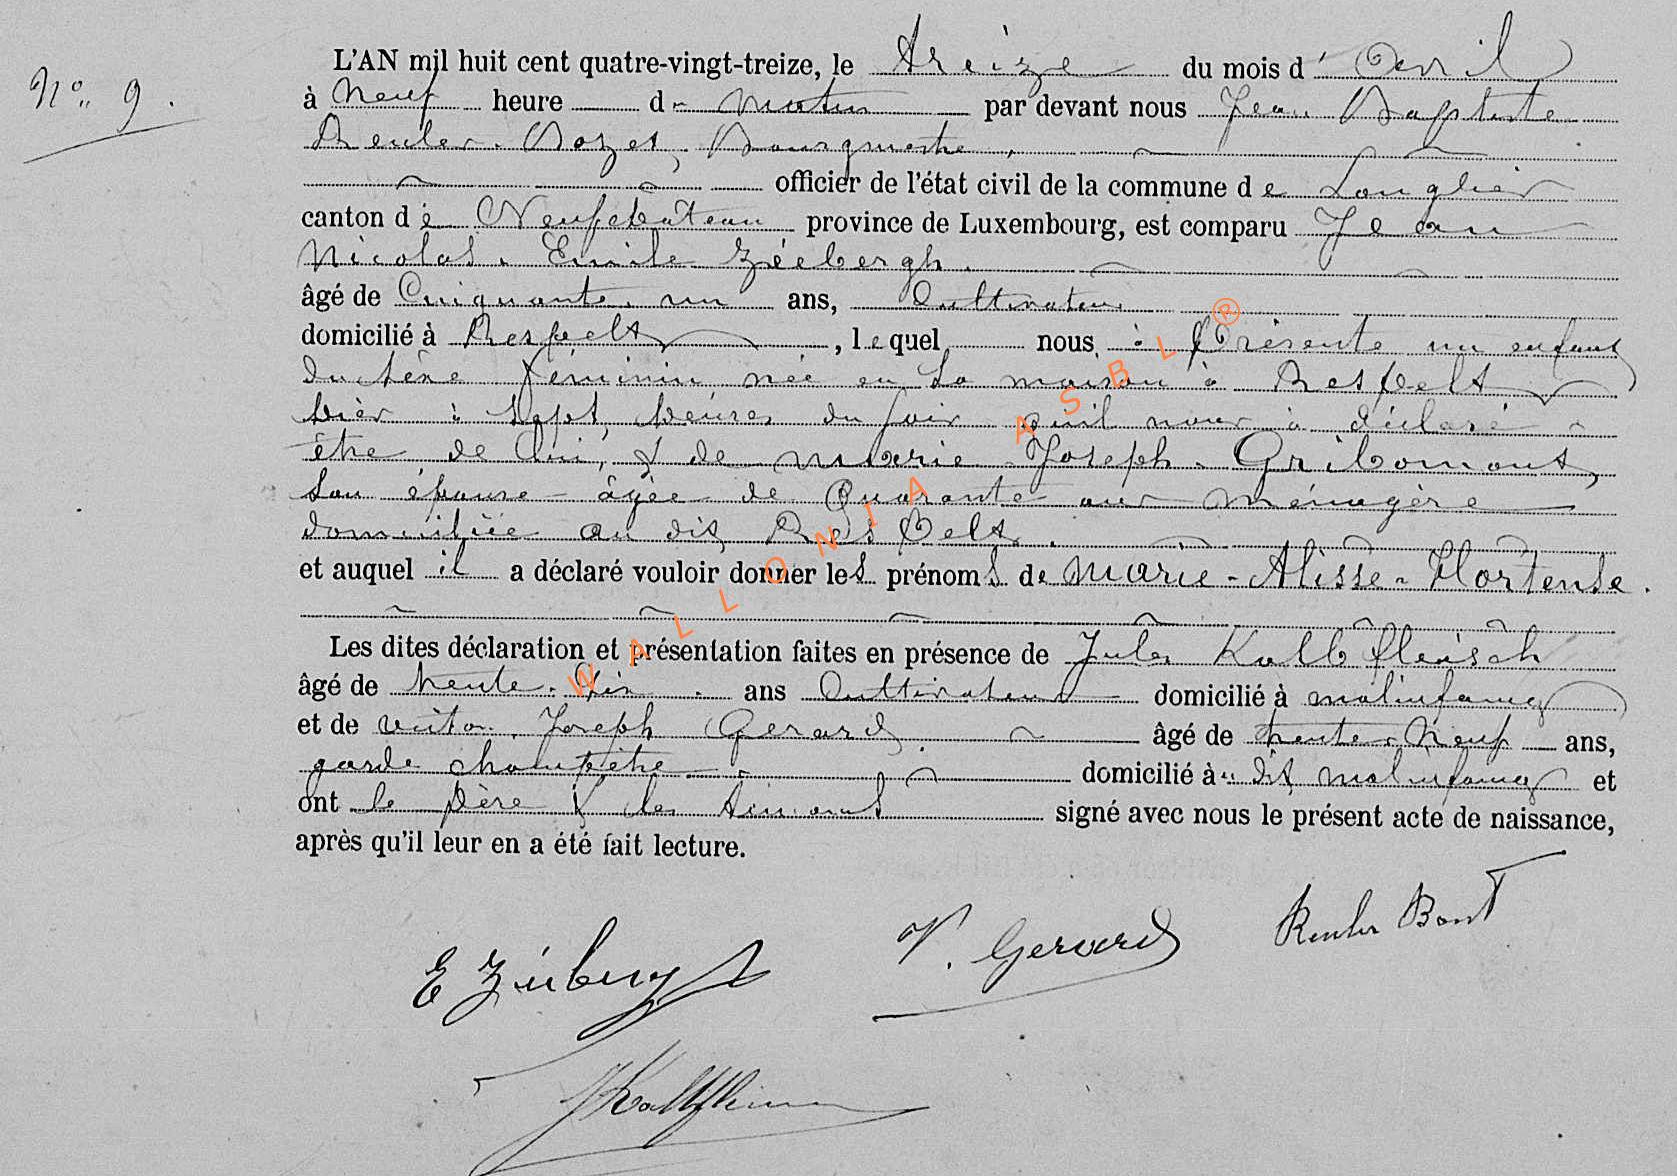 N° 9.
L'AN mil huit cent quatre-vingt-treize, le treize du mois d' Avril
à Neuf heure du matin par devant nous Jean Baptiste
Reuler. Bozet, Bourgmestre,
officier de l'état civil de la commune de Longlier
canton de Neufchâteau province de Luxembourg, est comparu Jean
Nicolas. Emile Zéebergh.
âgé de Cinquante. un ans, Cultivateur
domicilié à Respelt, lequel nous à Présenté un enfant
du sèxe féminin née en sa maison à Respelt
hièr à sept, heures du soir qu'il nous à déclaré
être de lui, & de marie Joseph. Gribomont,
son épouse âgée de Quarante ans ménagère
domiciliée au dit Respelt.
et auquel il a déclaré vouloir donner les prénoms de Marie-Alisse-Hortense.
Les dites déclaration et présentation faites en présence de Jules Kalbfleisch
âgé de trente. ans Cultivateur domicilié à malinfaing
et de victor. Joseph Gerard. âgé de trente. Neuf ans,
garde champêtre domicilié à dit malinfaing et
ont le père & les témoins signé avec nous le présent acte de naissance,
après qu'il leur en a été fait lecture.
V. Gerard
E Zéebergh
JKalbfleisch
WALLONIA ASBL ®